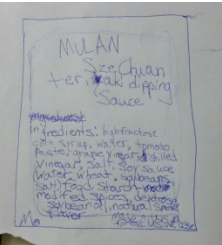 MULAN
SzeChuan
teriyaki dipping
Sauce
Ingredients: high fructose
corn syrup, water, tomato
Paste, grape vinegar, distilled
vinegar, salt, soy sauce
(water, wheat, soybeans,
salt) food starch
modified spices, dextrose
soybean oil, natural smoke
flavor